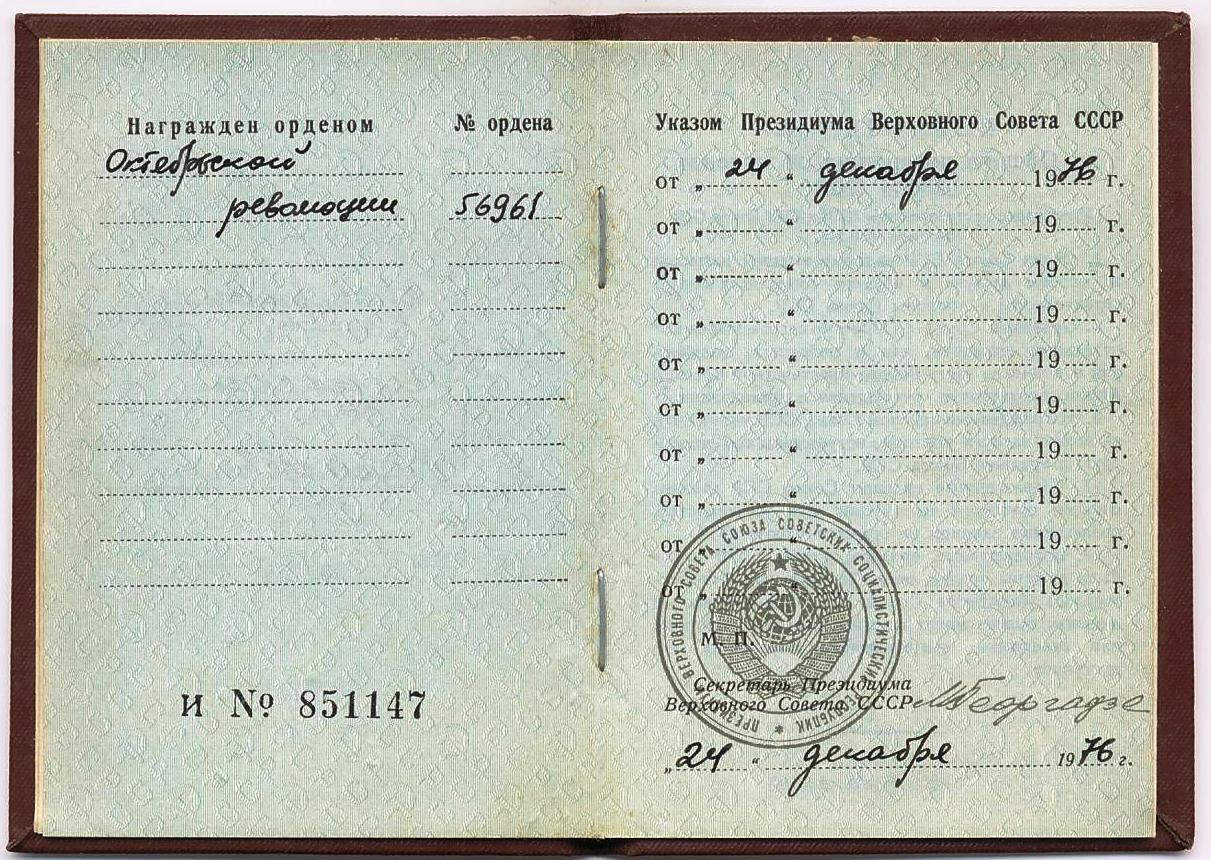 Награжден орденом № ордена
Октябрьской
революции 56961
И № 851147
Указом Президиума Верховного Совета СССР
от „ 24 “ декабря 1976 г.
от „ “ 19 г.
от „ “ 19 г.
от „ “ 19 г.
от „ “ 19 г.
от „ “ 19 г.
от „ “ 19 г.
от „ “ 19 г.
от „ “ 19 г.
от „ “ 19 г.
ПРЕЗИДИУМ ВЕРХОВНОГО СОВЕТА СОЮЗА СОВЕТСКИХ СОЦИАЛИСТИЧЕСКИХ РЕСПУБЛИК
М. П.
Секретарь Президиума
Верховного Совета СССР МГеоргадзе
„ 24 “ декабря 1976 г.